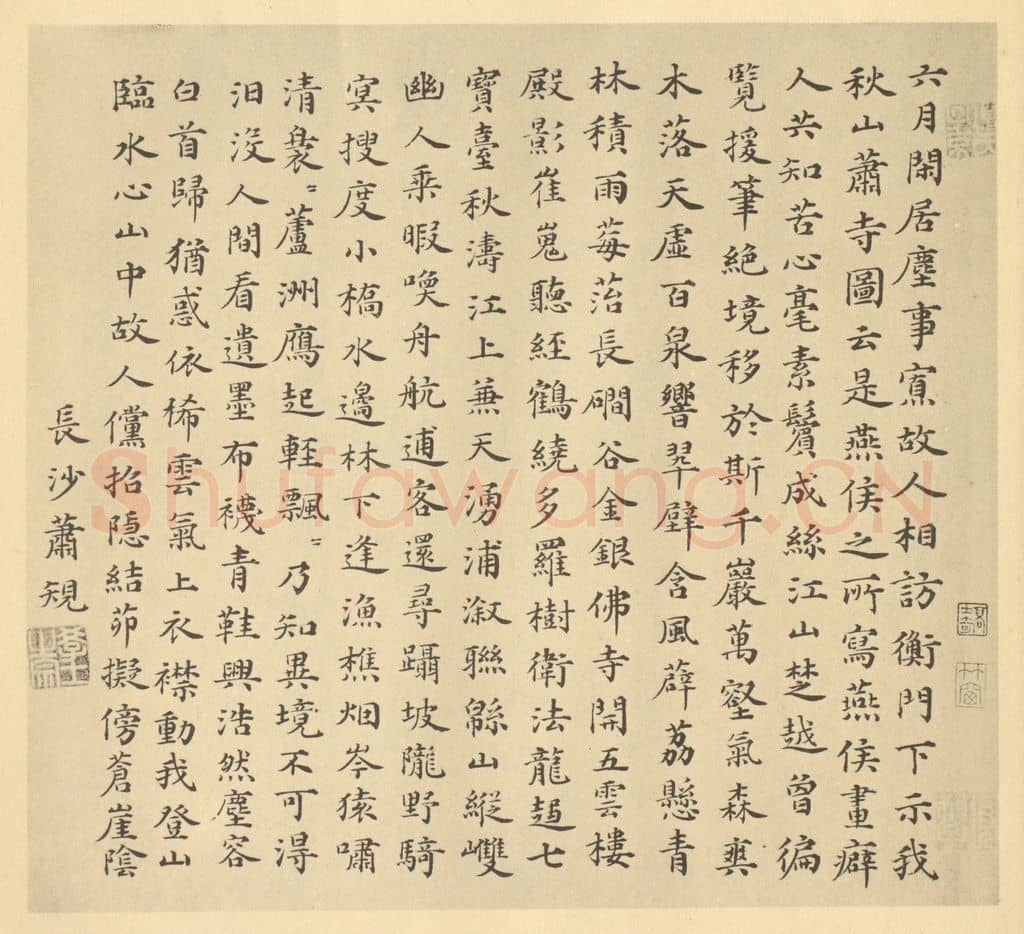 六月閑居塵事寡故人相訪衡門下示我
秋山蕭寺圖云是燕侯之所寫燕侯畫癖
人共知苦心毫素鬢成絲江山楚越曾徧
覽援筆絕境移於斯千巖萬壑氣森爽
木落天虛百泉響翠壁含風薜荔懸青
林積雨莓苔長磵谷金銀佛寺開五雲樓
殿影崔嵬聽經鶴繞多羅樹衛法龍超七
寶臺秋濤江上兼天湧浦溆聯緜山縱雙
幽人乘暇喚舟航逋客還尋躡坡隴野騎
㝠搜度小橋水邊林下逢漁樵烟岑猿嘯
清裊〻蘆洲鴈起輕飄〻乃知異境不可得
汩沒人間看遺墨布襪青鞋興浩然塵容
白首歸猶惑依稀雲氣上衣襟動我登山
臨水心山中故人儻招隱結茆擬傍蒼崖陰
長沙蕭規
Shufawang.CN